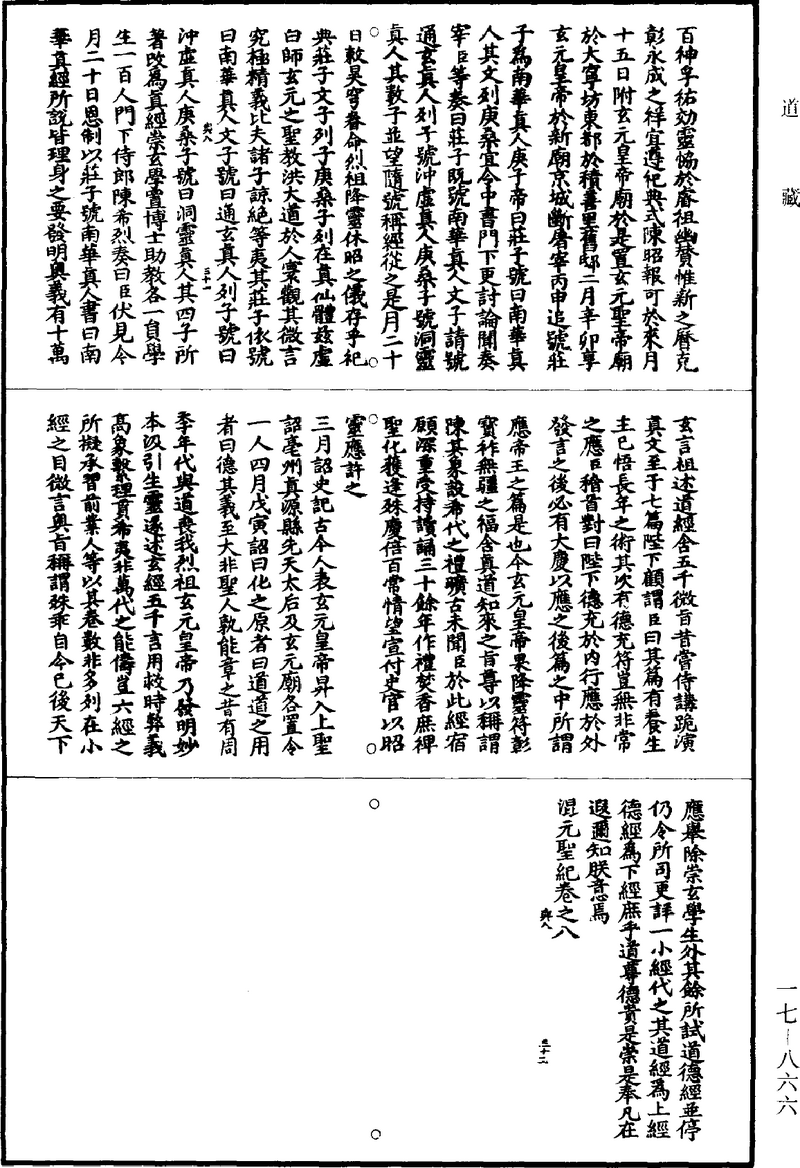 道藏
百神孚祐効靈愓於睿祖幽贊惟新之曆克
彰永成之祥宜遵祀典式陳昭報可於來月
十五日附玄元皇帝廟於是置玄元聖帝廟
於大寧坊東都於積善里舊邸二月辛卯享
玄元皇帝於新廟京城斷屠宰丙申追號莊
子為南華真人庚子帝曰莊子號曰南華真
人其文列庚桑宜令中書門下更討論聞奏
宰臣等奏曰莊子既號南華真人文子請號
通玄真人列子號沖虛真人庚桑子號洞靈
真人其數子並望隨號稱經從之是月二十
日敕昊穹眷命烈祖降靈休昭之儀存乎祀
典莊子文子列子庚桑子列在真仙體茲虛
白師玄元之聖教洪大道於人寰觀其微言
究極精義比夫諸子諒絕等夷其莊子依號
曰南華真人文子號曰通玄真人列子號曰
與八
三十一
沖虛真人庚桑子號曰洞靈真人其四子所
著改為真經崇玄學置博士助教各一員學
生一百人門下侍郎陳希烈奏曰臣伏見今
月二十日恩制以莊子號南華真人書曰南
華真經所說皆理身之要發明奧義有十萬
玄言祖述道經含五千微旨昔嘗侍講跪演
真文至于七篇陛下顧謂臣曰其篇有養生
主已悟長年之術其次有德充符豈無非常
之應臣稽首對曰陛下德充於內行應於外
發言之後必有大慶以應之後篇之中所謂
應帝王之篇是也今玄元皇帝果降靈符彰
寶祚無疆之福含真道知來之旨尊以稱謂
陳其象設希代之禮曠古未聞臣於此經宿
願深重受持讀誦三十餘年作禮焚香庶裨
聖化獲逢殊慶倍百常情望宣付史官以昭
靈應許之
三月詔史記古今人表玄元皇帝昇入上聖
詔亳州真源縣先天太后及玄元廟各置令
一人四月戊寅詔曰化之原者曰道道之用
者曰德其義至大非聖人孰能章之昔有周
季年代與道喪我烈祖玄元皇帝乃發明妙
本汲引生靈遂述玄經五千言用救時弊義
高象繫理貫希夷非萬代之能儔豈六經之
所擬承習前業人等以其卷數非多列在小
經之目微言奧旨稱謂殊乖自今已後天下
應舉除崇玄學生外其餘所試道德經並停
仍令所司更詳一小經代之其道經為上經
德經為下經庶乎道尊德貴是崇是奉凡在
遐邇知朕意焉
混元聖紀卷之八
與八
三十二
一七－八六六